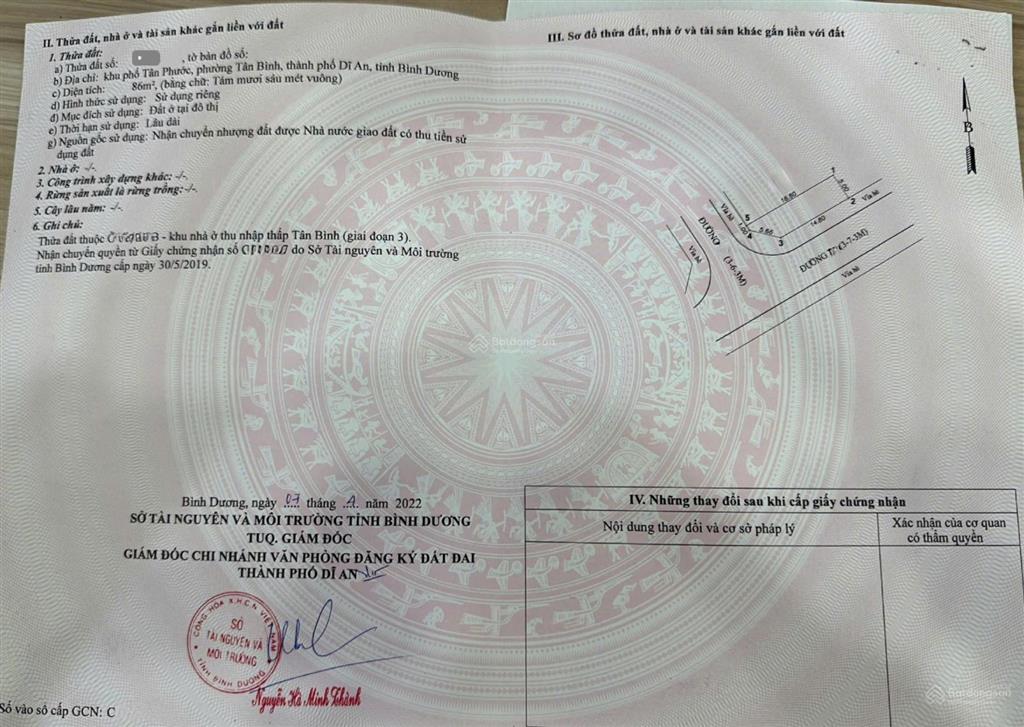 II. Thửa đất, nhà ở và tài sản khác gắn liền với đất
1. Thửa đất:
a) Thửa đất số: , tờ bản đồ số:
b) Địa chỉ: khu phố Tân Phước, phường Tân Bình, thành phố Dĩ An, tỉnh Bình Dương
c) Diện tích: 86m², (bằng chữ: Tám mươi sáu mét vuông)
d) Hình thức sử dụng: Sử dụng riêng
đ) Mục đích sử dụng: Đất ở tại đô thị
e) Thời hạn sử dụng: Lâu dài
g) Nguồn gốc sử dụng: Nhận chuyển nhượng đất được Nhà nước giao đất có thu tiền sử
dụng đất
2. Nhà ở: -/-.
3. Công trình xây dựng khác: -/-.
4. Rừng sản xuất là rừng trồng: -/-.
5. Cây lâu năm: -/-.
6. Ghi chú:
Thửa đất thuộc - khu nhà ở thu nhập thấp Tân Bình (giai đoạn 3).
Nhận chuyển quyền từ Giấy chứng nhận số do Sở Tài nguyên và Môi trường
tỉnh Bình Dương cấp ngày 30/5/2019.
Bình Dương, ngày 07 tháng năm 2022
SỞ TÀI NGUYÊN VÀ MÔI TRƯỜNG TỈNH BÌNH DƯƠNG
TUQ. GIÁM ĐỐC
GIÁM ĐỐC CHI NHÁNH VĂN PHÒNG ĐĂNG KÝ ĐẤT ĐAI
THÀNH PHỐ DĨ AN
CỘNG HÒA X.H.C.N VIỆT NAM
SỞ
TÀI NGUYÊN VÀ
MÔI TRƯỜNG
TỈNH BÌNH DƯƠNG
Nguyễn Hà Minh Thành
Số vào sổ cấp GCN: C
III. Sơ đồ thửa đất, nhà ở và tài sản khác gắn liền với đất
B
1
16.80
5.00
2
Vỉa hè
Vỉa hè
5
1.00
4
5.66
3
14.80
ĐƯỜNG
(3-6-3M)
Vỉa hè
ĐƯỜNG (3-7-3M)
Vỉa hè
IV. Những thay đổi sau khi cấp giấy chứng nhận
Nội dung thay đổi và cơ sở pháp lý
Xác nhận của cơ quan
có thẩm quyền
Batdongsan
Batdongsan